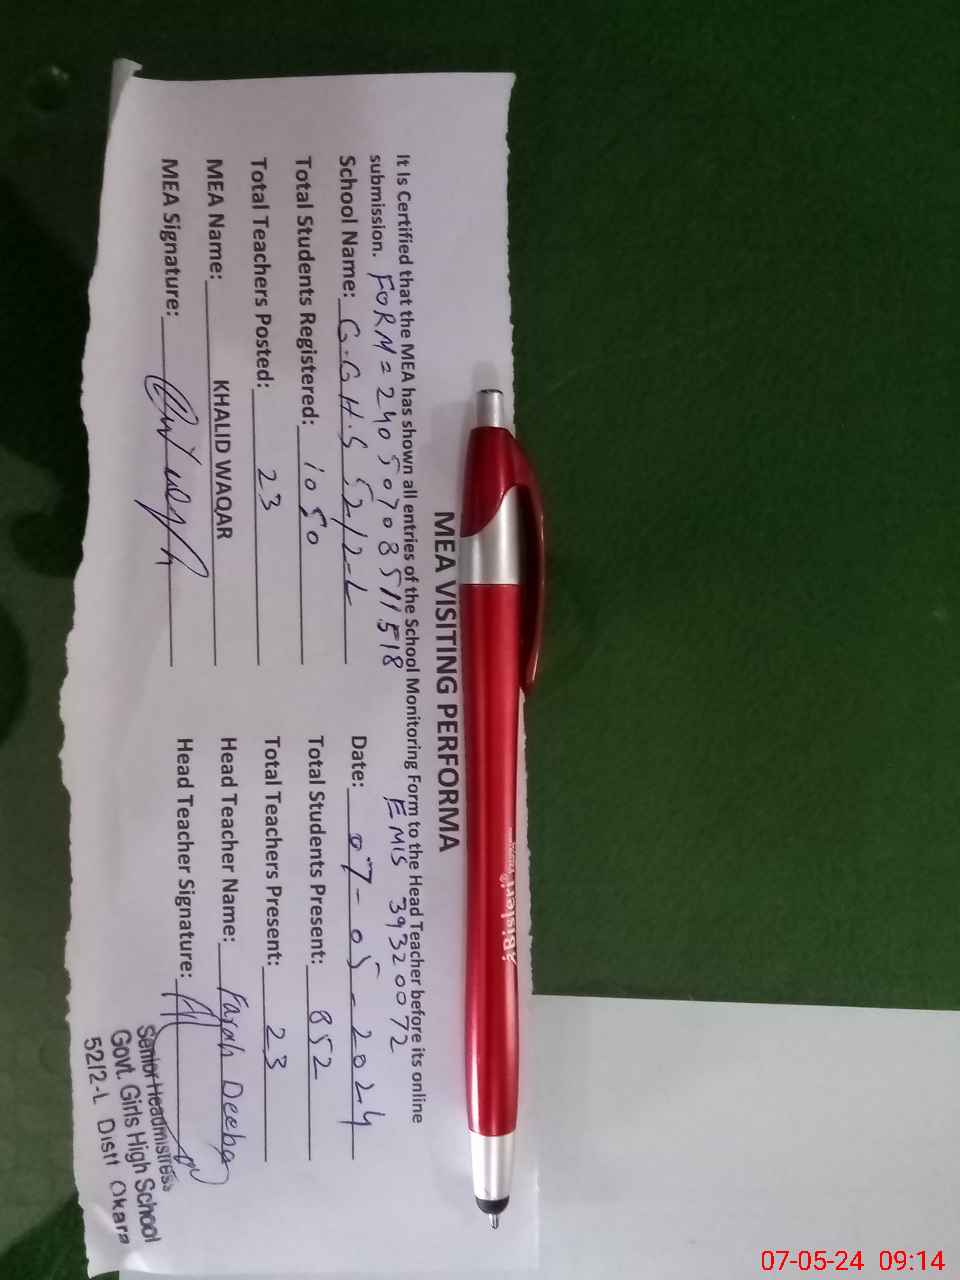 MEA VISITING PERFORMA
It Is Certified that the MEA has shown all entries of the School Monitoring Form to the Head Teacher before its online
submission. FORM = 24050708511518 EMIS 39320072
School Name: G.G.H.S 52/2-L Date: 07-05-2024
Total Students Registered: 1050 Total Students Present: 852
Total Teachers Posted: 23 Total Teachers Present: 23
MEA Name: KHALID WAQAR Head Teacher Name: Farah Deeba
MEA Signature: Head Teacher Signature:
Senior Headmistress
Govt. Girls High School
52/2-L Distt Okara
07-05-24 09:14